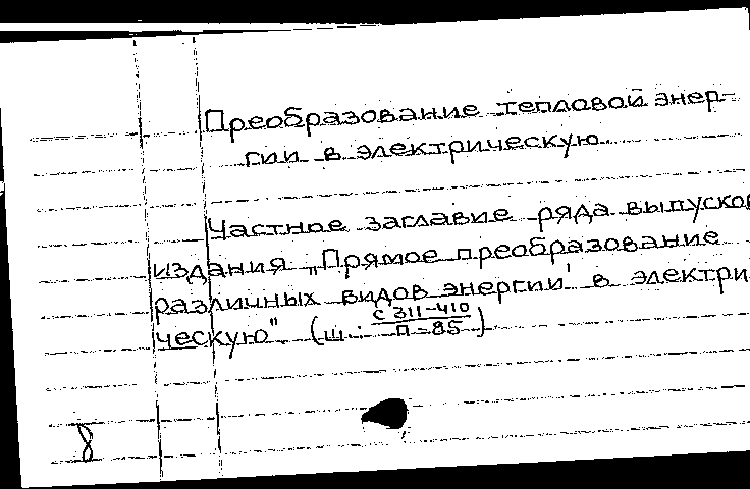 Преобразование тепловой энер-
гии в электрическую
Частное заглавие ряда выпусков
издания „Прямое преобразование
различных видов энергии в электри
ческую". (ш.: С 311-410
П-85)
8